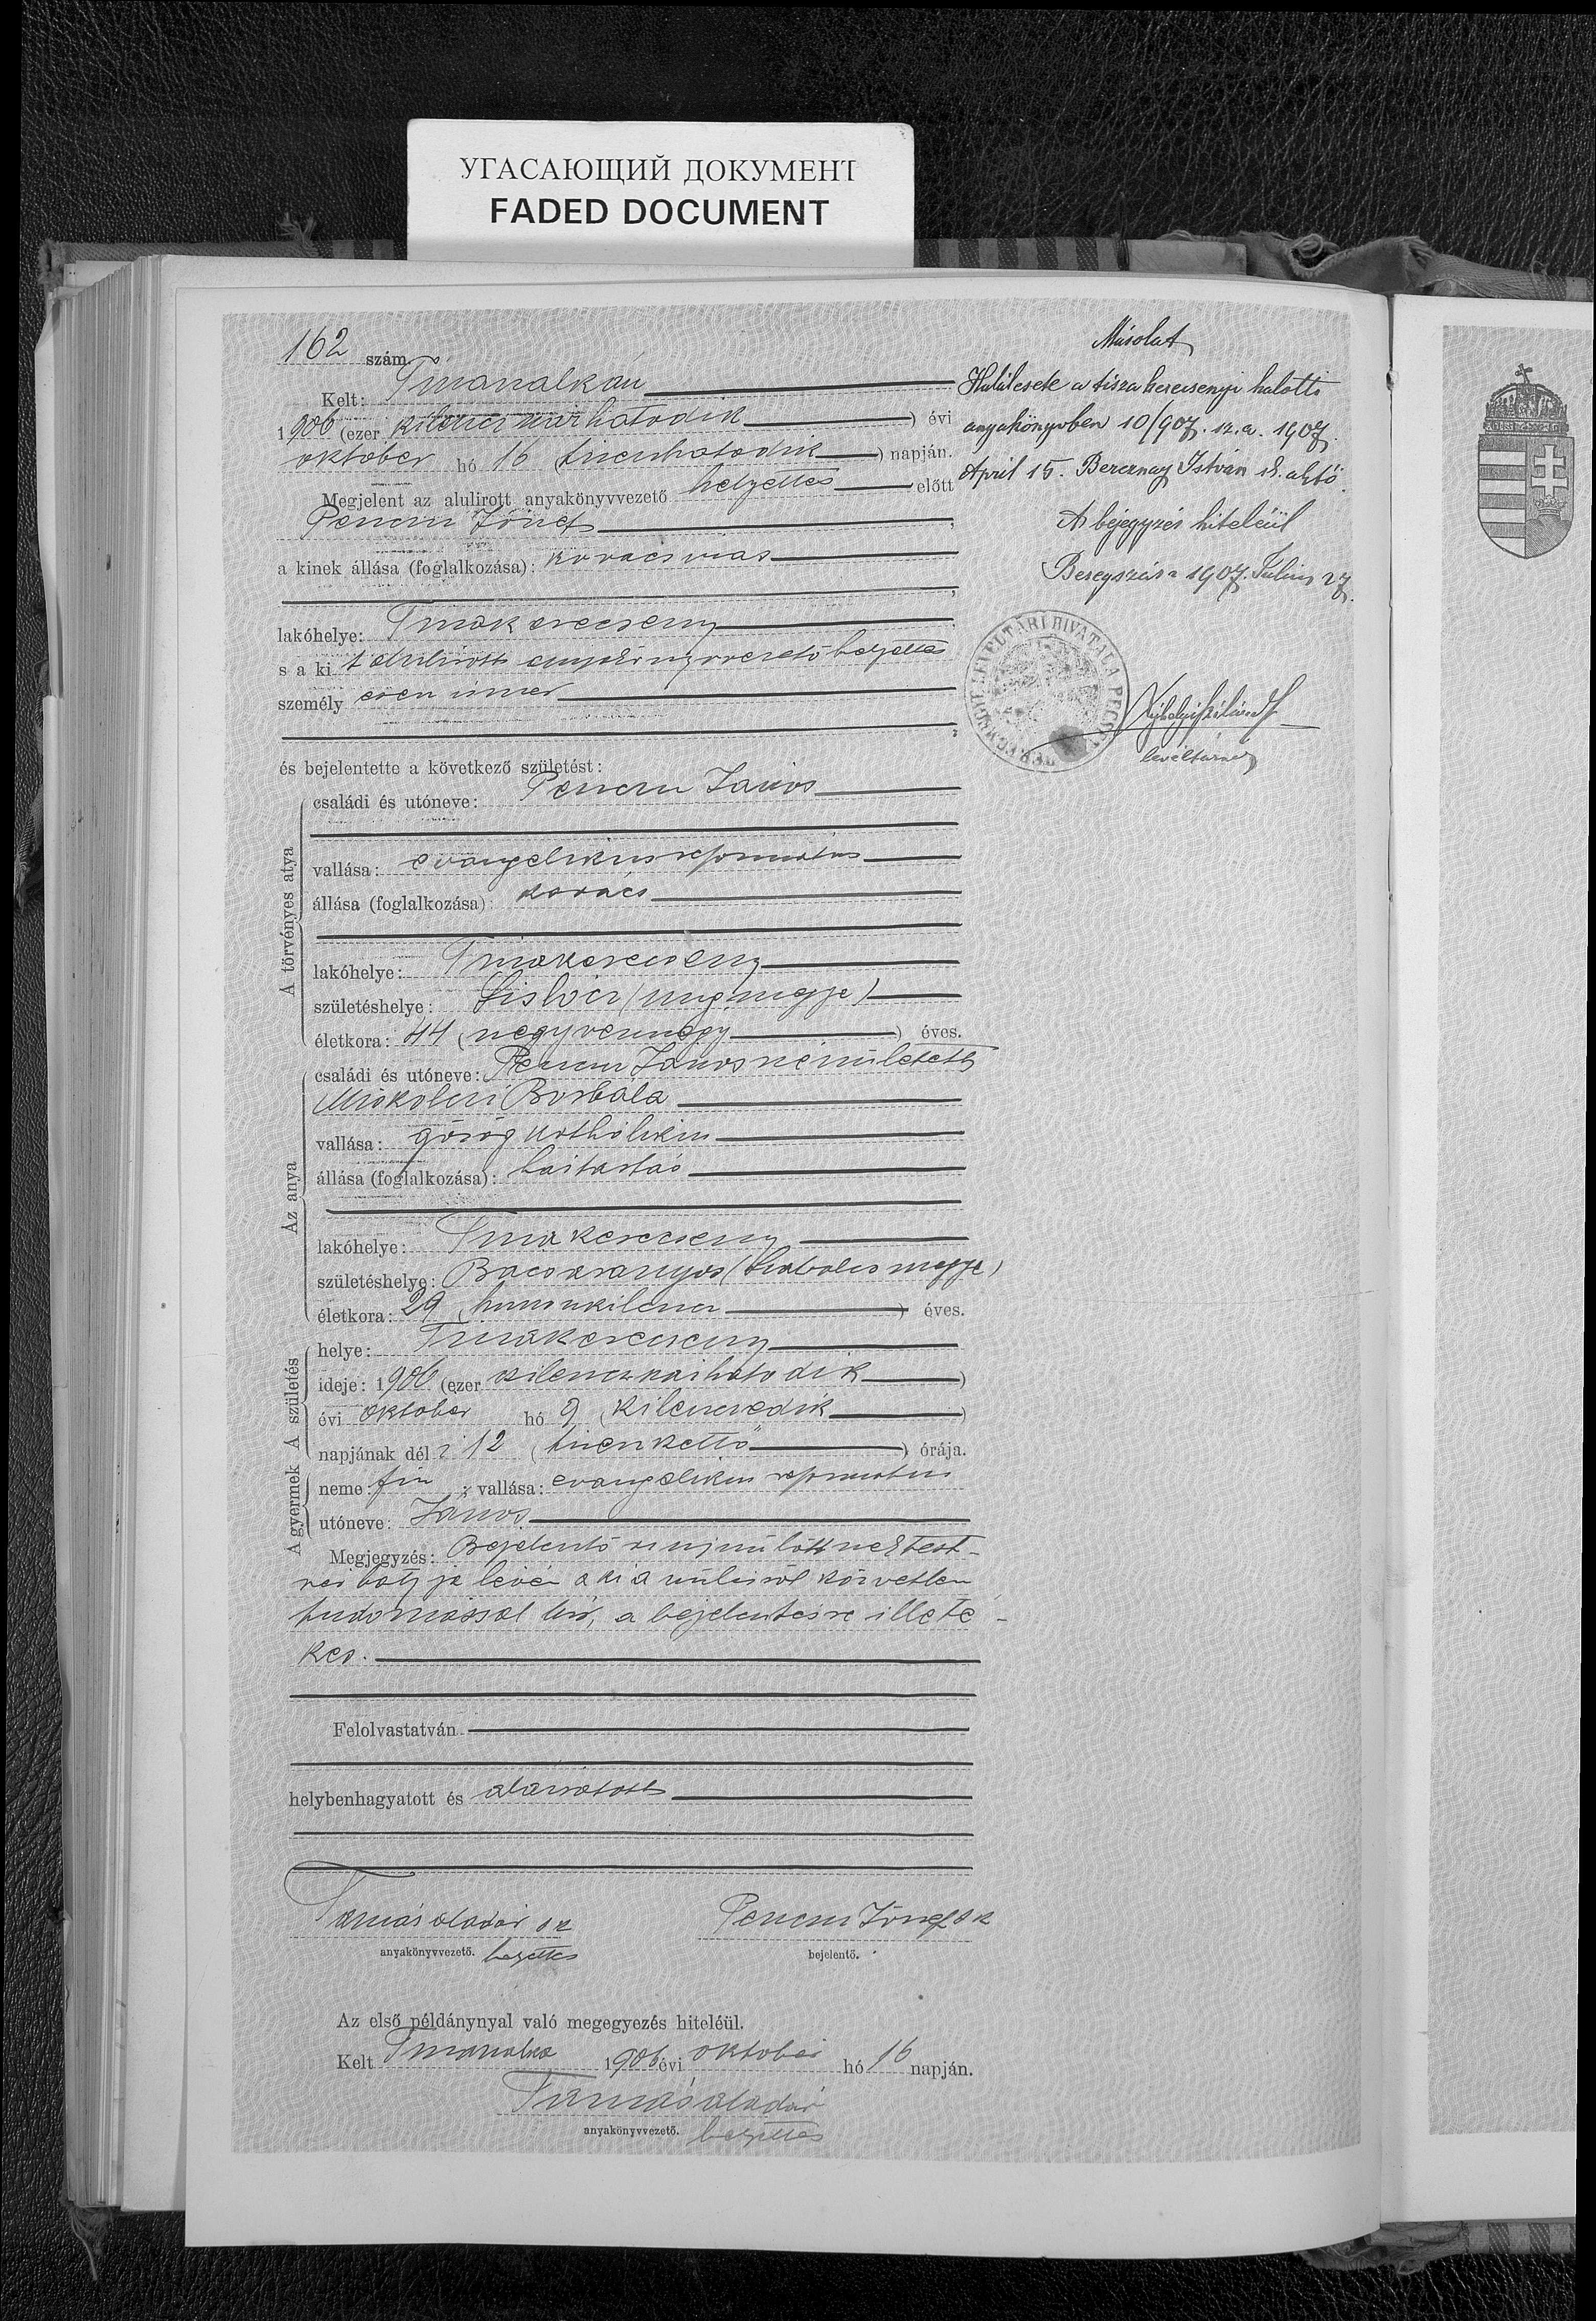 УГАСАЮЩИЙ ДОКУМЕНТ
FADED DOCUMENT
162 szám.
Kelt:
1906 (ezer kilenczszázhatodik) évi
október hó 16 (tizenhatodik) napján.
Megjelent az alulirott anyakönyvvezető helyettes előtt
József,
a kinek állása (foglalkozása): kovács
lakóhelye: Tiszakerecseny,
s a ki anyakönyvvezető helyettes
személy ismer
és bejelentette a következő születést:
A törvényes atya
családi és utóneve: János
vallása: evangelikus református
állása (foglalkozása): kovács
lakóhelye: Tiszakerecseny
születéshelye: (ungmegye)
életkora: 44 (negyvennégy) éves.
Az anya
családi és utóneve: Jánosné született
Borbála
vallása: görög katholikus
állása (foglalkozása): háztartás
lakóhelye: Tiszakerecseny
születéshelye: (Szabolcsmegye)
életkora: 29 (huszonkilencz) éves.
A születés
helye: Tiszakerecseny
ideje: 1906 (ezer kilenczszázhatodik)
évi október hó 9 (kilenczedik)
napjának dél i 12 (tizenkettő) órája.
A gyermek
neme: fiu; vallása: evangelikus református
utóneve: János
Megjegyzés: Bejelentő az ujszülöttnek test-
vér bátyja lévén a ki a szülésről közvetlen
tudomással bír, a bejelentésre illeté-
kes.
Felolvastatván
helybenhagyatott és aláíratott
Tamás Aladár sk
anyakönyvvezető. helyettes
József sk
bejelentő.
Az első példánynyal való megegyezés hiteléül.
Kelt 1906 évi október hó 16 napján.
Tamás Aladár
anyakönyvvezető. helyettes
Másolat
Halálesete a tiszakerecsenyi halotti
anyakönyvben 10/907. sz. a. 1907.
April 15. István
A bejegyzés hiteléül
Beregszász 1907. Julius 27.
LEVÉLTÁRI HIVATALA
levéltárnok